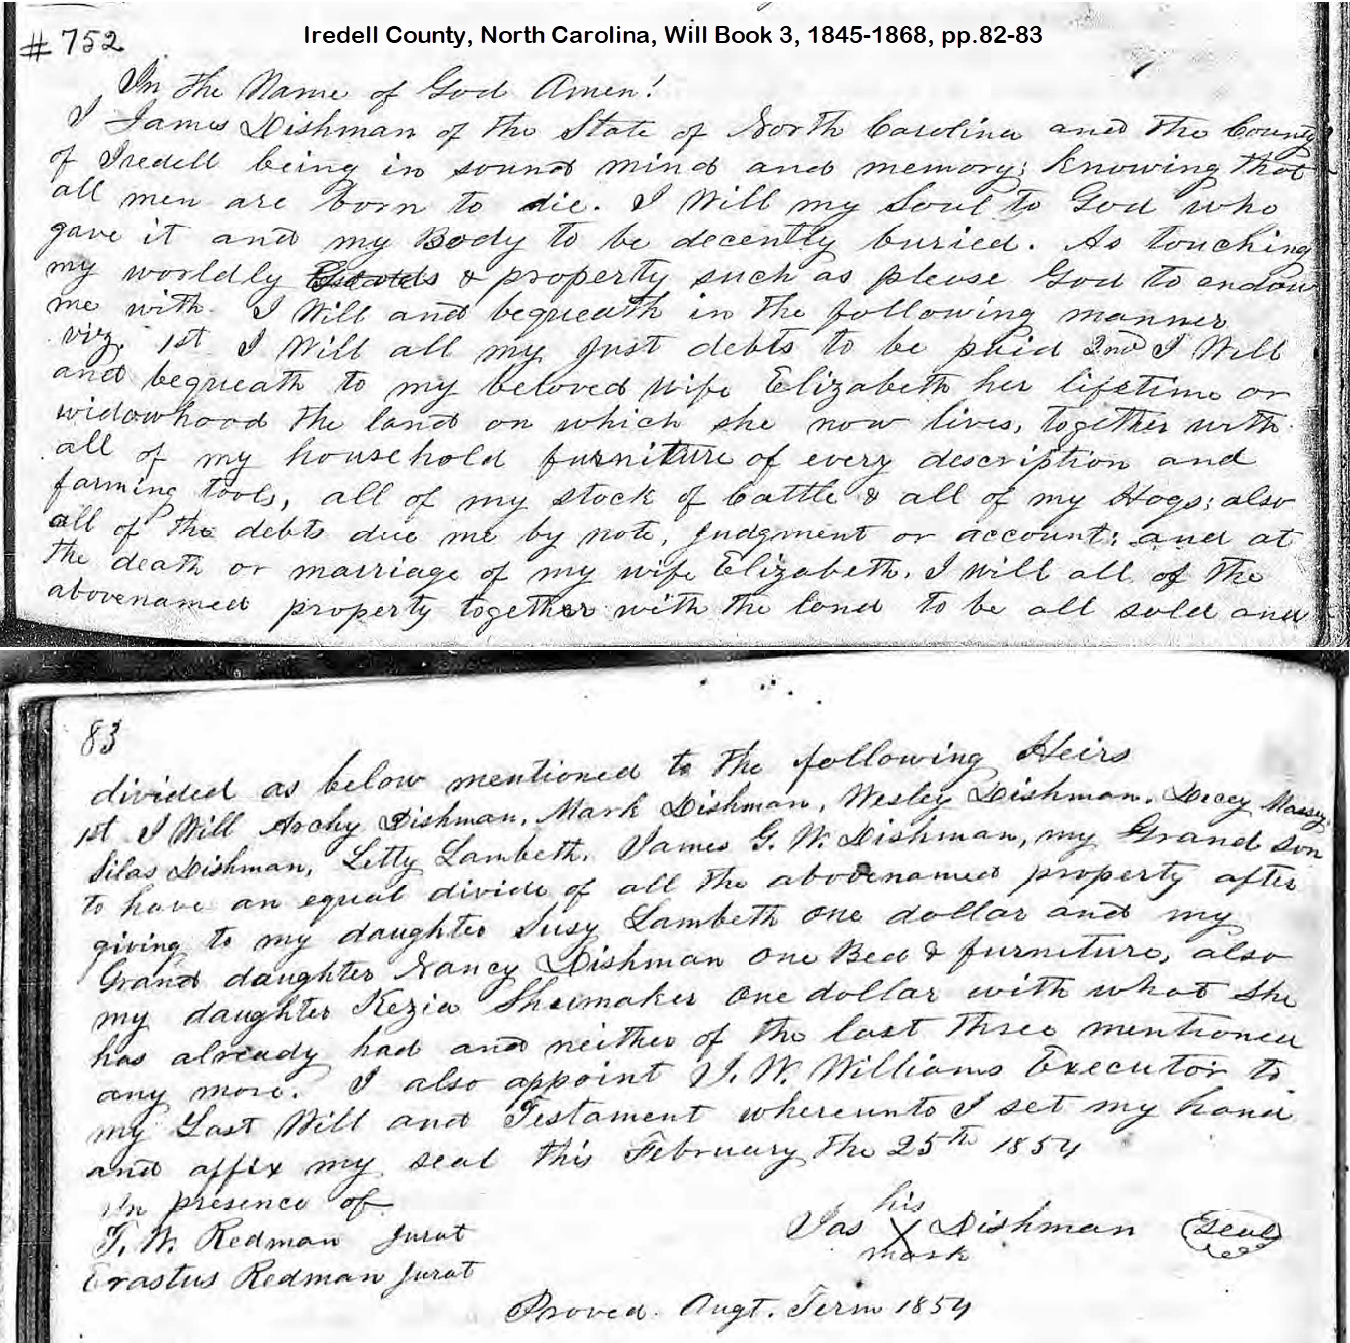 Iredell County, North Carolina, Will Book 3, 1845-1868, pp.82-83
# 752
In the Name of God Amen!
I James Dishman of the State of North Carolina and the County
of Iredell being in sound mind and memory; knowing that
all men are born to die. I Will my Soul to God who
gave it and my Body to be decently buried. As touching
my worldly & property such as please God to endow
me with. I Will and bequeath in the following manner
viz. 1st I Will all my just debts to be paid 2nd I Will
and bequeath to my beloved wife Elizabeth her lifetime or
widowhood the land on which she now lives, together with
all of my household furniture of every description and
farming tools, all of my stock of Cattle & all of my Hogs; also
all of the debts due me by note, Judgment or account; and at
the death or marriage of my wife Elizabeth. I will all of the
abovenamed property together with the land to be all sold and
83
divided as below mentioned to the following Heirs
1st I Will Archy Dishman, Mark Dishman, Wesley Dishman, Decey Massy,
Silas Dishman, Letty Lambeth, James G. W. Dishman, my Grand Son
to have an equal divide of all the abovenamed property after
giving to my daughter Susy Lambeth one dollar and my
Grand daughter Nancy Dishman one Bed & furniture, also
my daughter Kezia Shoimaker one dollar with what she
has already had and neither of the last three mentioned
any more. I also appoint J. W. Williams Executor to
my Last Will and Testament whereunto I set my hand
and affix my seal this February the 25th 1854
In presence of
T. W. Redman Jurat
Erastus Redman Jurat
his
Jas X Dishman Seal
mark
Proved Augt. Term 1854